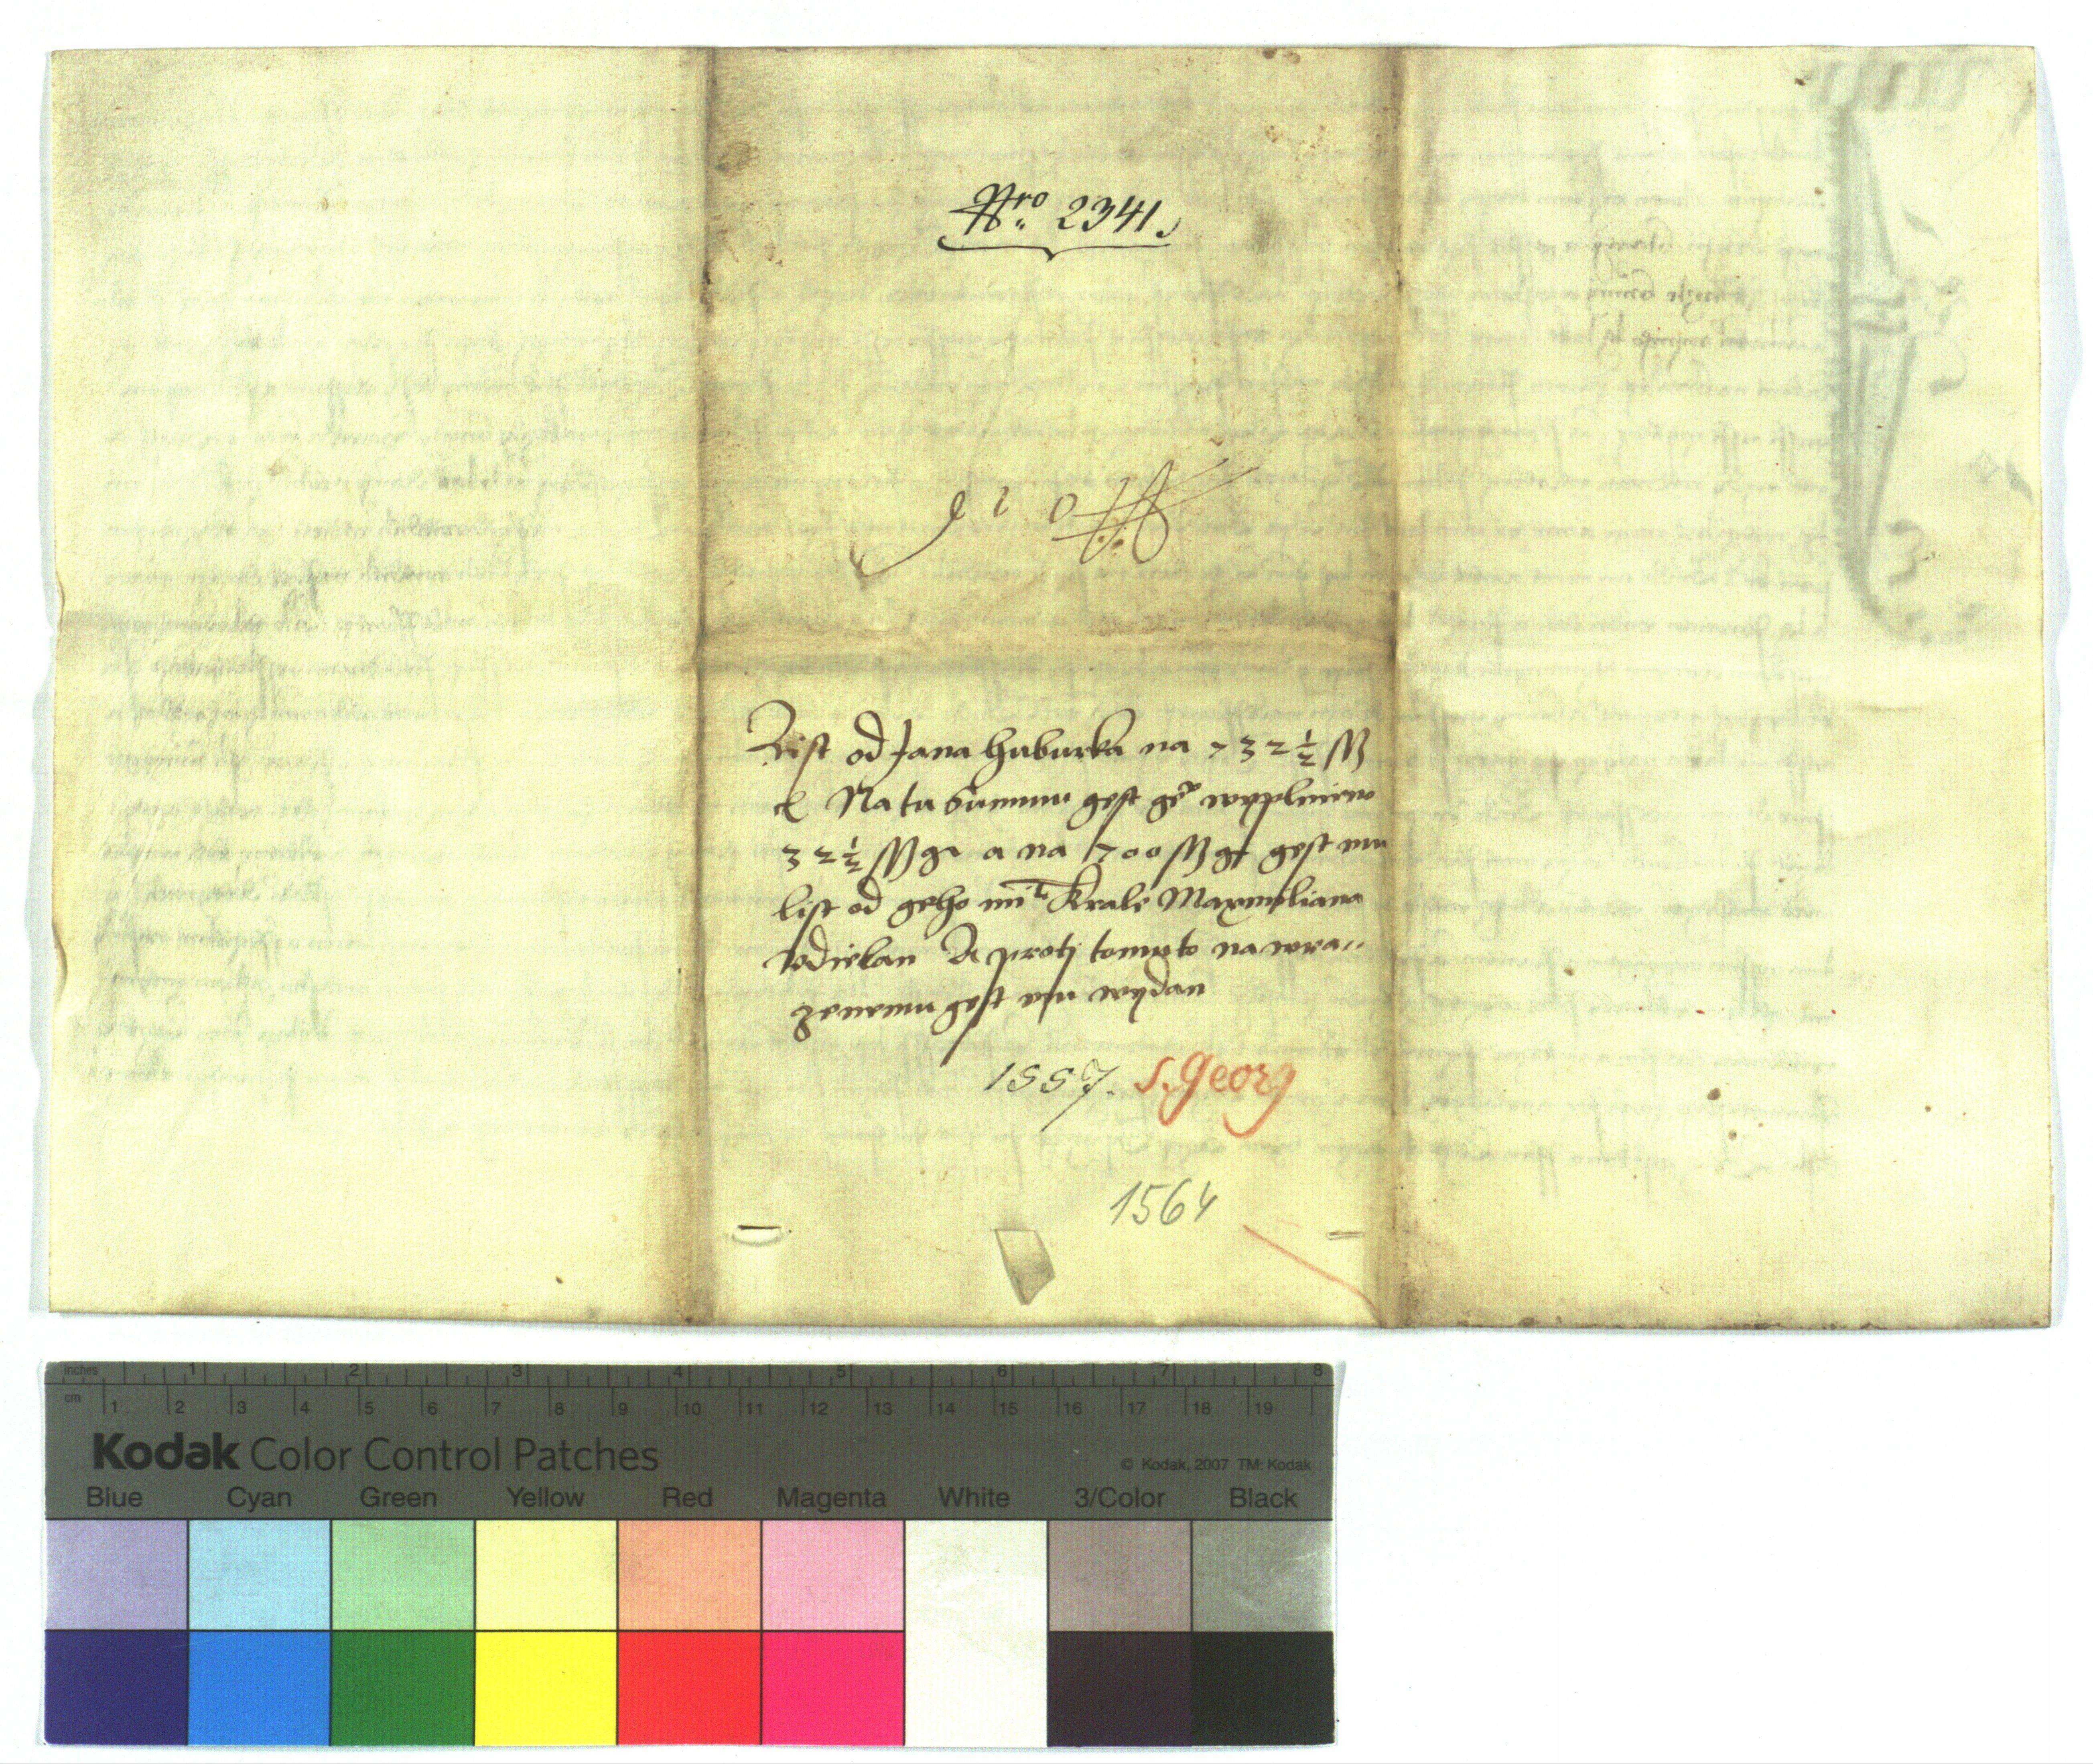 Nro 2341.
List od Jana huburka na 732½ ß
Na tu Summu gest ge° wyplnieno
32½ ß gr a na 700 ß gr gest mu
list od geho mti Krale Maxmiliana
vdielan A proti tomuto nawra„
zenemu gest mu wydan
1557. S. Georg
1564
inches 1 2 3 4 5 6 7 8
cm 1 2 3 4 5 6 7 8 9 10 11 12 13 14 15 16 17 18 19
Kodak Color Control Patches
© Kodak, 2007 TM: Kodak
Blue Cyan Green Yellow Red Magenta White 3/Color Black